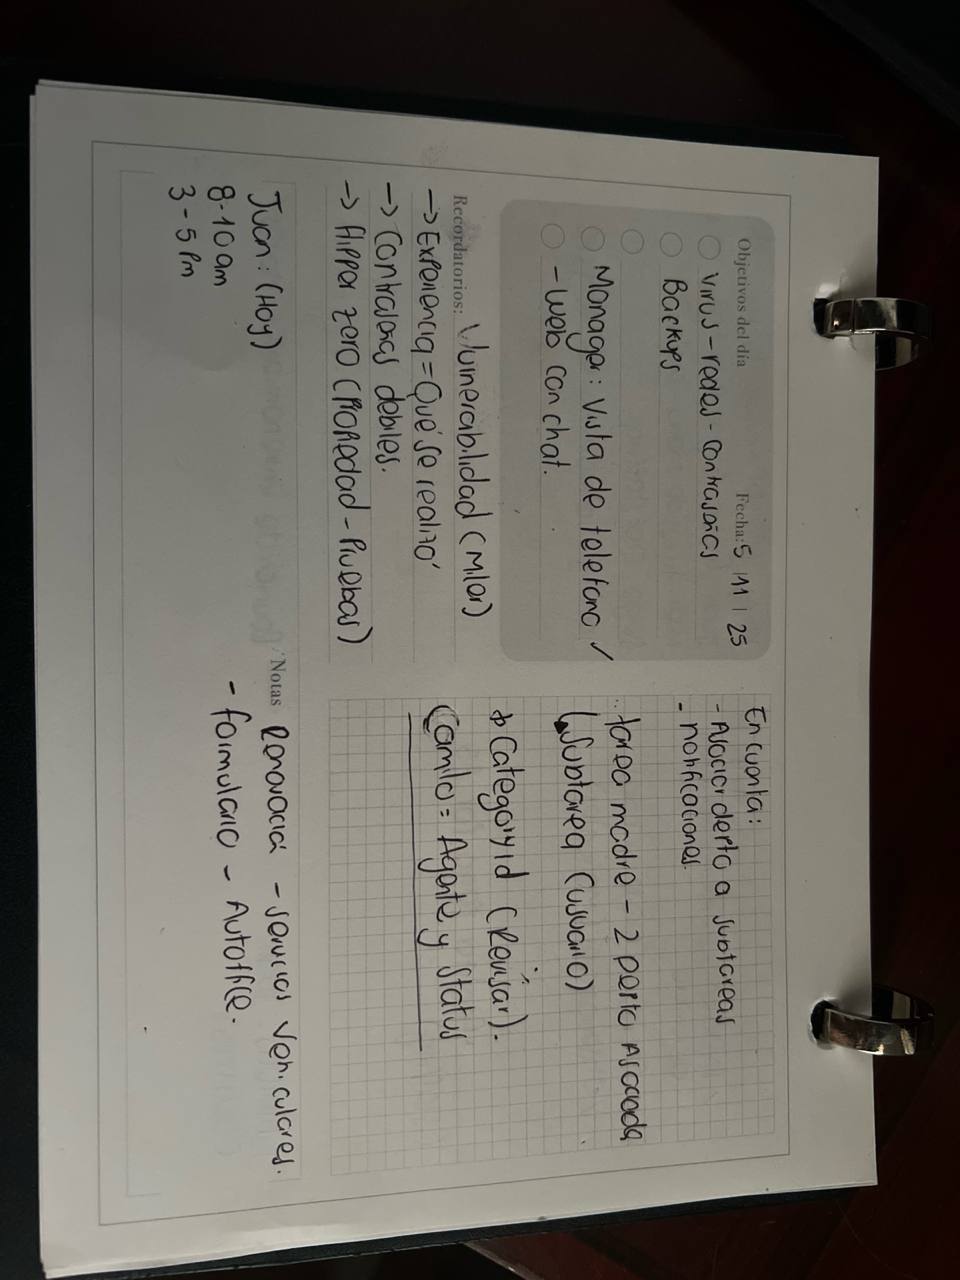 Objetivos del día Fecha: 5 / 11 / 25
Virus - redes - contraseñas
Backups
Manager: Vista de telefono ✓
- web con chat.
Recordatorios: Vulnerabilidad (Miler)
→ Experiencia = Qué se realizó
→ Contraseñas debiles.
→ flipper zero (Propiedad - Pruebas)
Juan: (Hoy)
8-10 am
3 - 5 pm
En cuenta:
- Asociar depto a subtareas
- notificaciones.
tarea madre - 2 depto Asociada
↳ Subtarea (usuario)
→ Categoryid (Revisar).
Camilo = Agente y Status
Notas Renovacia - servicios Vehiculares.
- formulario - Autoffice.